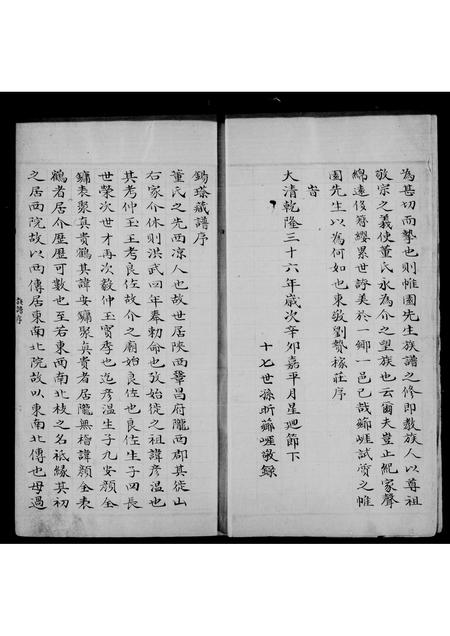 為甚切而摯也則帷園先生族譜之修即敎族人以尊祖
敬宗之義使董氏永為介之望族也云爾夫豈止紀家聲
綿遠後簪纓累世誇美於一鄉一邑已哉薌崕試質之帷
園先生以為何如也東敬劉贊稼莊序
旹
大清乾隆三十六年歲次辛夘嘉平月星廻節下
十七世孫昕薌崕敬錄
鍚塔藏譜序
董氏之先西凉人也故世居陝西鞏昌府隴西郡其徙山
右家介休則洪武四年奉勅命也攷始徙之祖諱彥温也
其考仲玉王考良佐故介之廟始良佐也良佐生子四長
世榮次世才再次毅仲玉寳季也迄彥温生子九安顔全
鏞表聚真貴鶴其諱安鏞聚真貴者居隴無稽諱顔全表
鶴者居介歷歷可數也至若東西南北枝之名祗緣其初
之居西院故以西傳居東南北院故以東南北傳也毋過
族譜序